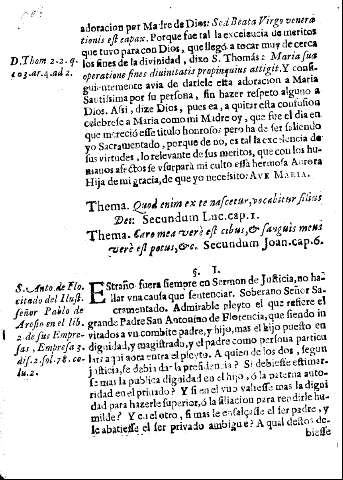 adoracion por Madre de Dios: Sed Beata Virgo venera
tionis est capax. Porque fue tal la excelencia de meritos
que tuvo para con Dios, que llegó a tocar muy de cerca
D. Thom 2. 2. q.
los fines de la divinidad, dixo S. Thomas: Maria sua
103. ar. 4. ad 2.
operatione fines divinitatis propinquius attigit. Y consi-
guientemente avia de darsele esta adoracion a Maria
Santissima por su persona, sin hazer respeto alguno a
Dios. Assi, dize Dios, pues ea, a quitar esta confusion
celebrese a Maria como mi Madre oy, que fue el dia en
que mereció esse titulo honroso; pero ha de ser saliendo
yo Sacramentado, porque de no, es tal la excelencia de
sus virtudes, lo relevante de sus meritos, que con los hu-
manos afectos se vsurpará mi culto essa hermosa Aurora
Hija de mi gracia, de que yo necesito: AVE MARIA.
Thema. Quod enim ex te nascetur, vocabitur filius
Dei: Secundum Luc. cap. 1.
Thema. Caro mea verè est cibus, & sanguis meus
verè est potus, &c. Secundum Joan. cap. 6.
§. I.
S. Anto. de Flo-
citado del Ilust.
señor Pablo de
Aresio en el lib.
2 de sus Empre-
sas, Empresa 3.
dis. 2. fol. 78. co-
lu. 2.
EStraño fuera siempre en Sermon de Justicia, no ha-
llar vna causa que sentenciar. Soberano Señor Sa-
cramentado. Admirable pleyto el que refiere el
grande Padre San Antonino de Florencia, que siendo in
vitados a vn combite padre, y hijo, mas el hijo puesto en
dignidad, y magistrado, y el padre como persona particu
lar: aqui aora entra el pleyto. A quien de los dos, segun
justicia, se debia dar la presidencia? Si debiesse estimar-
se mas la publica dignidad en el hijo, ó la paterna auto-
ridad en el privado? Y si en el vno valiesse mas la digni
dad para hazerle superior, ó la filiacion para rendirle hu-
milde? Y en el otro, si mas le ensalçasse el ser padre, y
le abatiesse el ser privado ambigue? A qual destos de-
biesse